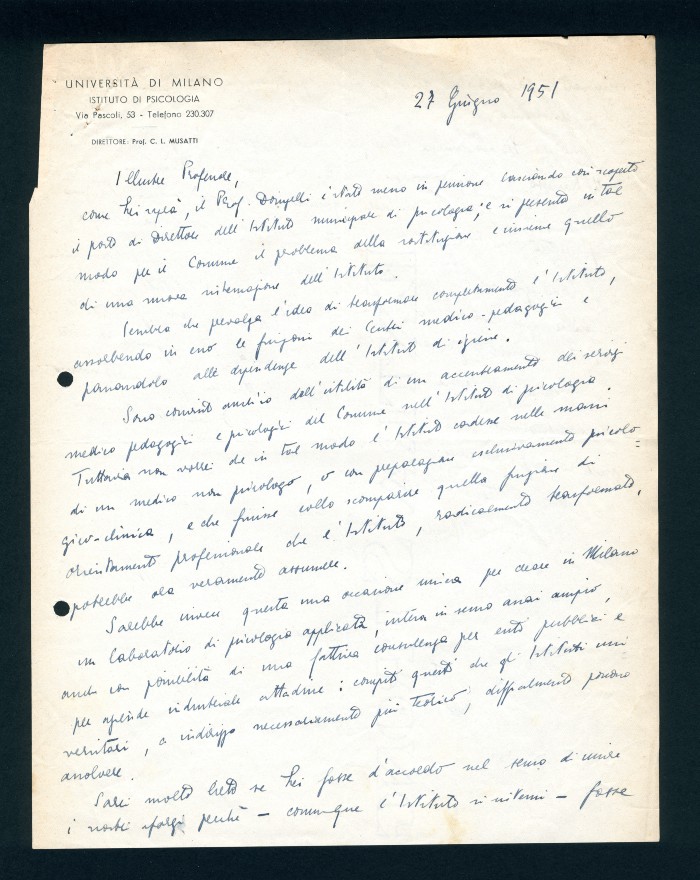 UNIVERSITÀ DI MILANO
ISTITUTO DI PSICOLOGIA
Via Pascoli, 53 - Telefono 230.307
DIRETTORE: Prof. C. L. MUSATTI
27 Giugno 1951
Illustre Professore,
come Lei saprà, il Prof. Donzelli è stato messo in pensione lasciando così scoperto
il posto di Direttore dell'Istituto municipale di psicologia; e si presenta in tal
modo per il Comune il problema della sostituzione e insieme quello
di una nuova sistemazione dell'Istituto.
Sembra che prevalga l'idea di trasformare completamente l'Istituto,
assorbendo in esso le funzioni dei Centri medico-pedagogici e
passandolo alle dipendenze dell'Istituto di igiene.
Sono convinto anch'io dell'utilità di un accentramento dei servizi
medico pedagogici e psicologici del Comune nell'Istituto di psicologia.
Tuttavia non vorrei che in tal modo l'Istituto cadesse nelle mani
di un medico non psicologo, o con preparazione esclusivamente psicolo=
gico-clinica, e che finisse collo scomparire quella funzione di
orientamento professionale che l'Istituto, radicalmente trasformato,
potrebbe ora veramente assumere.
Sarebbe invece questa una occasione unica per creare in Milano
un Laboratorio di psicologia applicata, intesa in senso assai ampio,
anche con possibilità di una fattiva consulenza per enti pubblici e
per aziende industriale cittadine: compiti questi che gli Istituti uni
versitari, a indirizzo necessariamente più teorico, difficilmente possono
assolvere.
Sarei molto lieto se Lei fosse d'accordo nel senso di unire
i nostri sforzi perché - comunque l'Istituto si sistemi - fosse